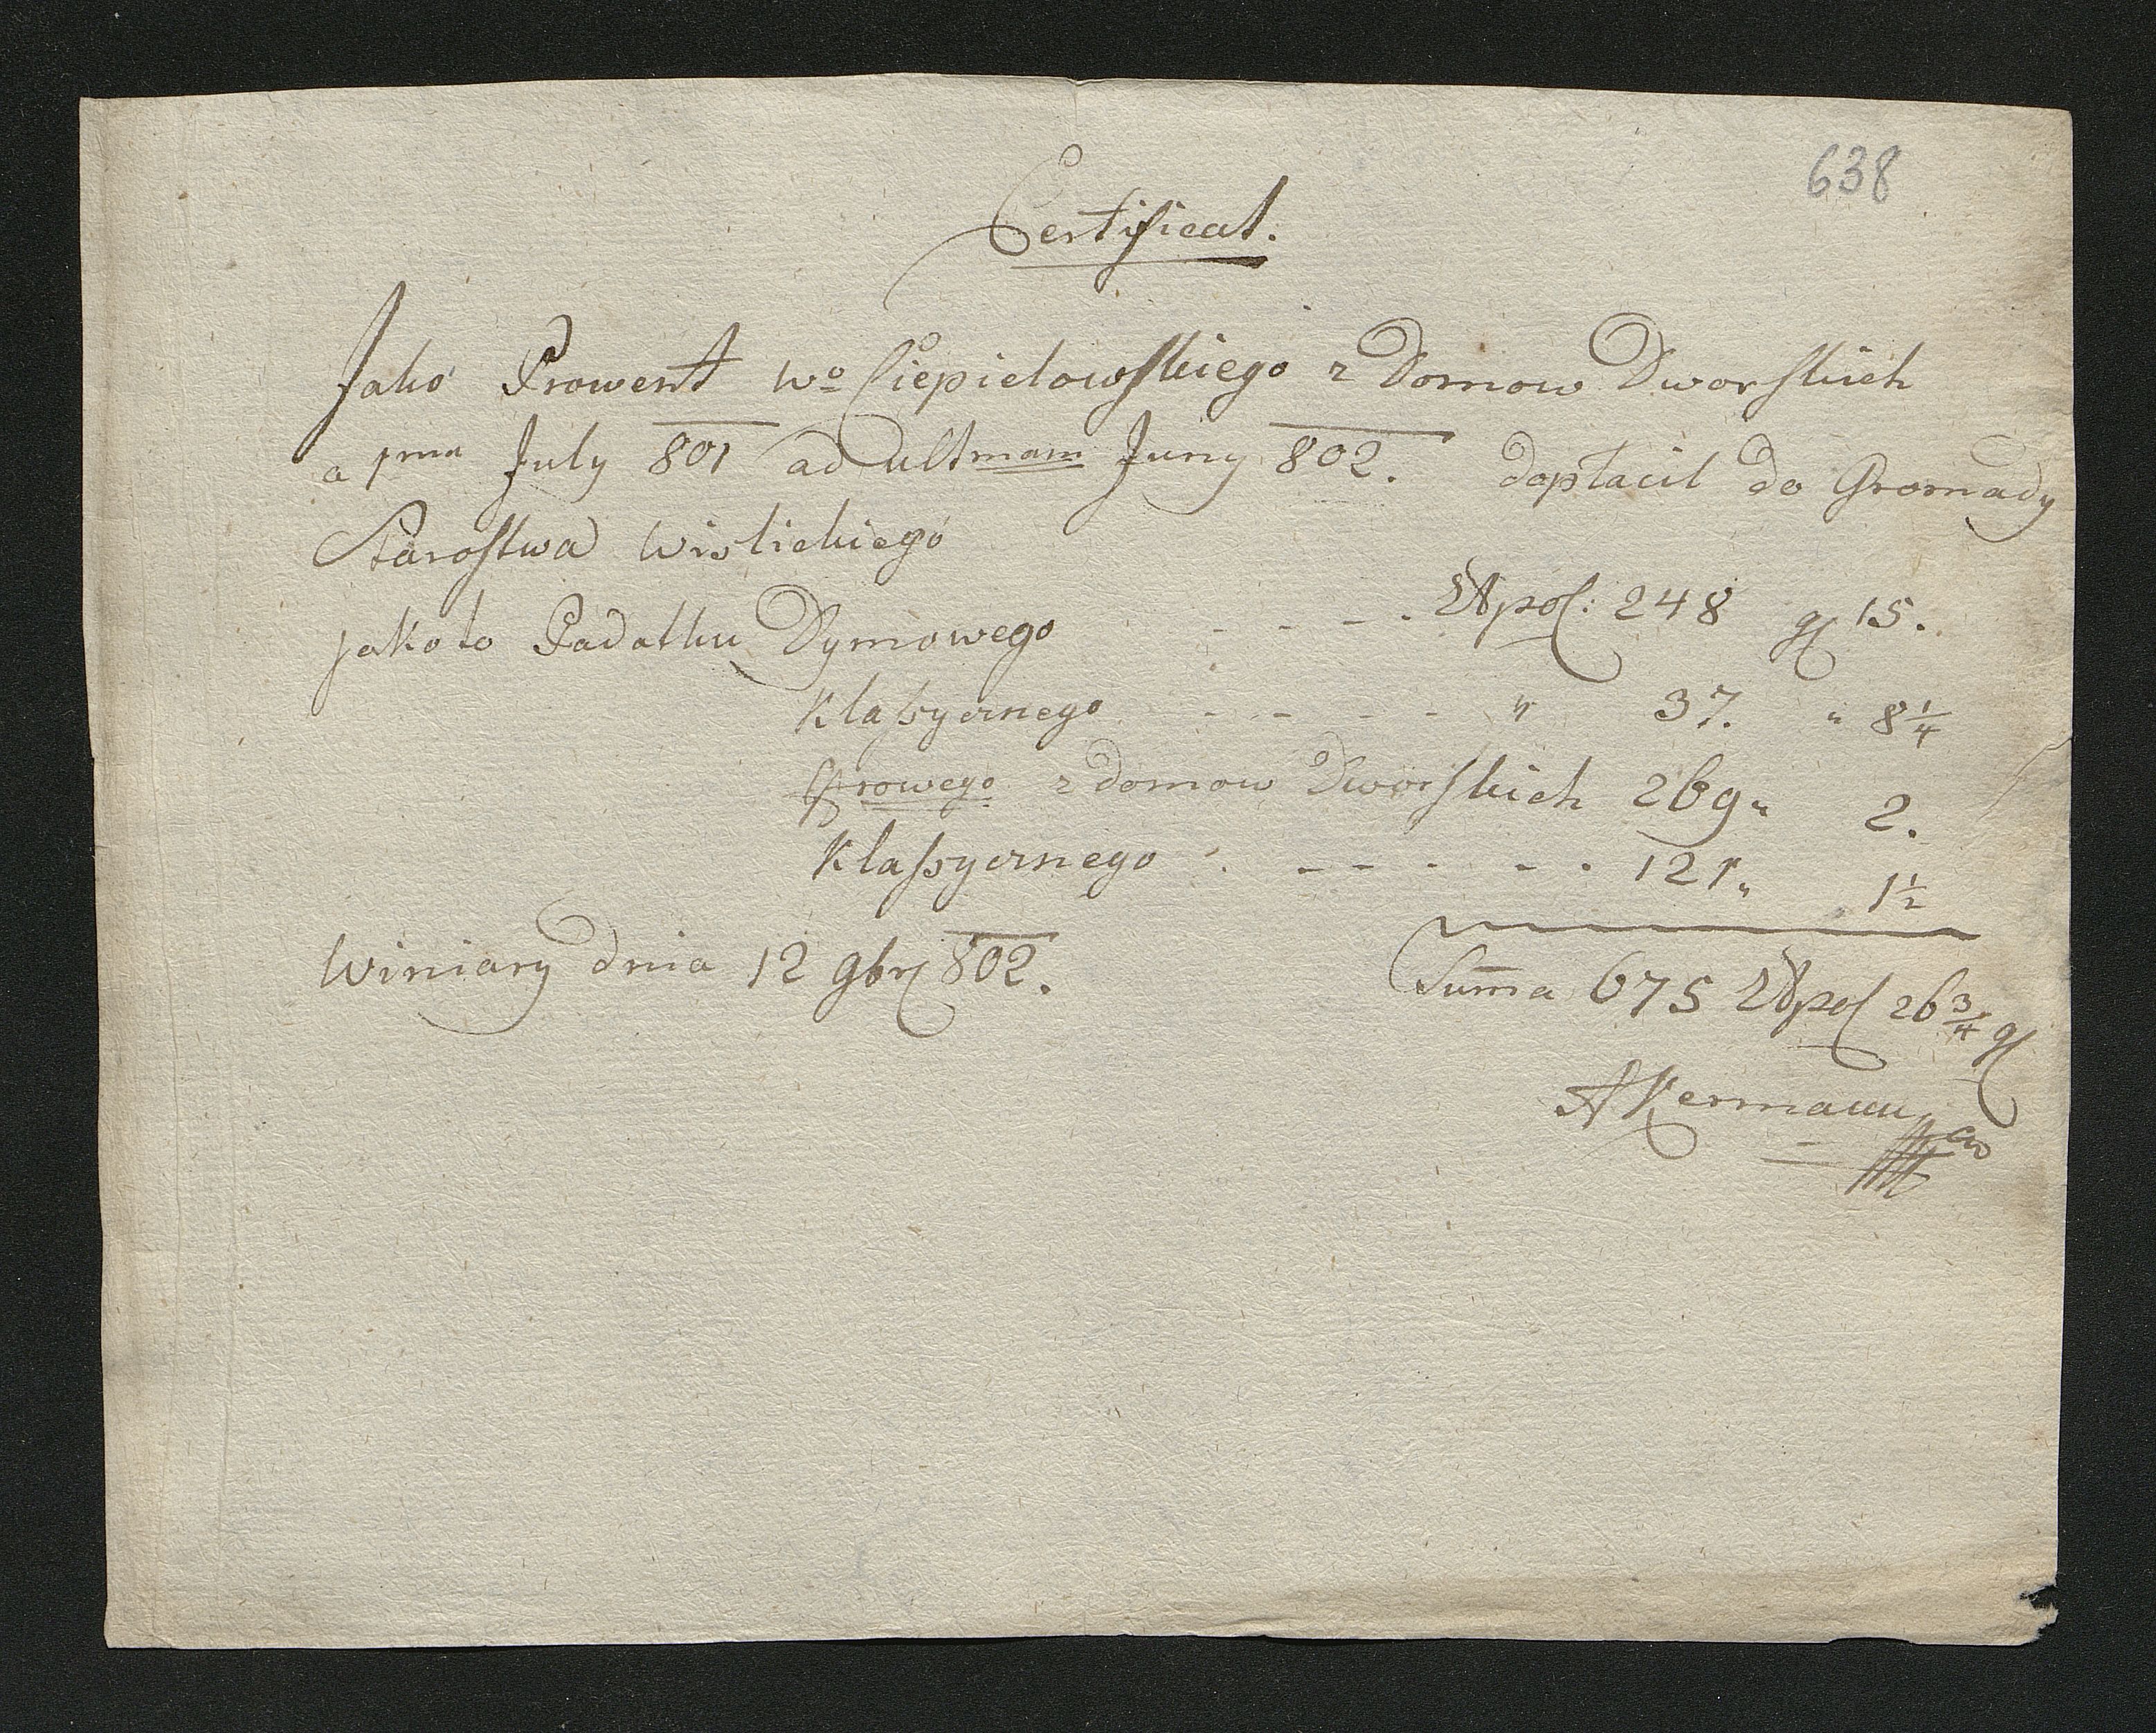 638
Certificat.
Jako Prowent Wo Ciepielowskiego z Domow Dworskich
a 1ma July 801 ad ultmam Juny 802. dopłacił do Gromady
Starostwa Wislickiego
jako to Padatku Dymowego - - - - Złpol: 248 gr 15.
Klassycznego - - - - " 37. " 8 1/4
z domow Dworskich 269 " 2.
Klassycznego . - - - - . 121 " 1 1/2
Winiary dnia 12 9br 802. Summa 675 Złpol 26 3/4 gr
AKermann